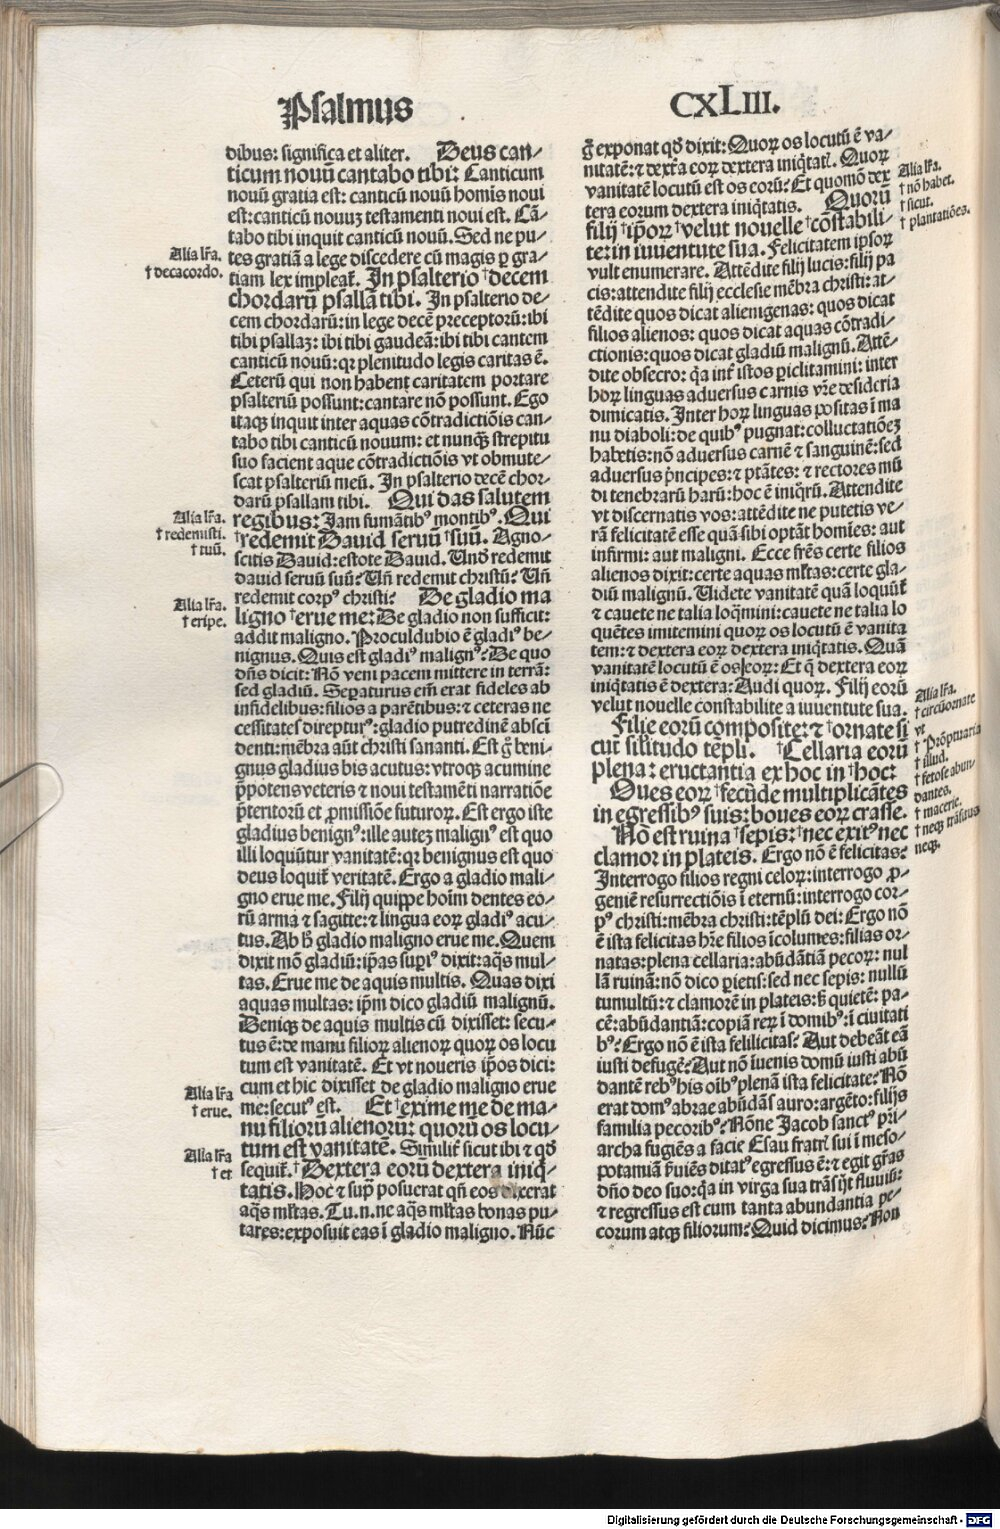 Psalmus
CXLIII.
dibus: significa et aliter. Deus can⸗
ticum nouū cantabo tibi: Canticum
nouū gratia est: canticū nouū homīs noui
est: canticū nouuꝫ testamenti noui est. Cā⸗
tabo tibi inquit canticū nouū. Sed ne pu⸗
tes gratiā a lege discedere cū magis ꝑ gra⸗
tiam lex impleat᷑. In psalterio †decem
chordarū psallā tibi. In psalterio de⸗
cem chordarū: in lege decē preceptorū: ibi
tibi psallaꝫ: ibi tibi gaudeā: ibi tibi cantem
canticū nouū: qꝛ plenitudo legis caritas ē.
Ceterū qui non habent caritatem portare
psalteriū possunt: cantare nō possunt. Ego
itaqꝫ inquit inter aquas cōtradictiōis can⸗
tabo tibi canticū nouum: et nunqꝫ̄ strepitu
suo facient aque cōtradictiōis vt obmute⸗
scat psalteriū meū. In psalterio decē chor⸗
darū psallam tibi. Qui das salutem
regibus: Jam fumātibꝰ montibꝰ. Qui
†redemit Dauid seruū †suū. Agno⸗
scitis Dauid: estote Dauid. Unde redemit
dauid seruū suū? Un̄ redemit christū? Un̄
redemit corpꝰ christi? De gladio ma
ligno †erue me: De gladio non sufficit:
addit maligno. Proculdubio ē gladiꝰ be⸗
nignus. Quis est gladiꝰ malignꝰ? De quo
dn̄s dicit: Nō veni pacem mittere in terrā:
sed gladiū. Separaturus em̄ erat fideles ab
infidelibus: filios a parētibus: ⁊ ceteras ne
cessitates direpturꝰ: gladio putredinē absci
denti: mēbra aūt christi sananti. Est gͦ beni⸗
gnus gladius bis acutus: vtroqꝫ acumine
p̄potens veteris ⁊ noui testamēti narratiōe
p̄teritorū et ꝓmissiōe futuroꝝ. Est ergo iste
gladius benignꝰ: ille auteꝫ malignꝰ est quo
illi loquūtur vanitatē: qꝛ benignus est quo
deus loquit᷑ veritatē. Ergo a gladio mali⸗
gno erue me. Filij quippe hoīm dentes eo⸗
rū arma ⁊ sagitte: ⁊ lingua eoꝝ gladiꝰ acu⸗
tus. Ab hͦ gladio maligno erue me. Quem
dixit mō gladiū: ip̄as suꝑiꝰ dixit: aq̄s mul⸗
tas. Erue me de aquis multis. Quas dixi
aquas multas: ip̄m dico gladiū malignū.
Deniqꝫ de aquis multis cū dixisset: secu⸗
tus ē: de manu filioꝝ alienoꝝ quoꝝ os locu
tum est vanitatē. Et vt noueris ip̄os dici:
cum et hic dixisset de gladio maligno erue
me: secutꝰ est. Et †exime me de ma⸗
nu filiorū alienorū: quorū os locu⸗
tum est vanitatē. Similit᷑ sicut ibi ⁊ qd̄
sequit᷑. †Dextera eorū dextera iniq̇⸗
tatis. Hoc ⁊ supͣ posuerat qn̄ eos dixerat
aq̄s ml̄tas. Tu.n.ne aq̄s ml̄tas bonas pu⸗
tares: exposuit eas ī gladio maligno. Nūc
Alia lr̄a.
†decacordo.
Alia lr̄a.
†redemisti.
†tuū.
Alia lr̄a.
†eripe.
Alia lr̄a
†erue.
Alia lr̄a
†et
gͦ exponat qd̄ dixit: Quoꝝ os locutū ē va⸗
nitatē: ⁊ dextra eoꝝ dextera iniq̇tat᷑. Quoꝝ
vanitatē locutū est os eorū? Et quomō dex
tera eorum dextera iniq̇tatis. Quorū
filij †ip̄oꝝ †velut nouelle †cōstabili⸗
te: in iuuentute sua. Felicitatem ipsoꝝ
vult enumerare. Attēdite filij lucis: filij pa
cis: attendite filij ecclesie mēbra christi: at⸗
tēdite quos dicat alienigenas: quos dicat
filios alienos: quos dicat aquas cōtradi⸗
ctionis: quos dicat gladiū malignū. Attē⸗
dite obsecro: qͥa int᷑ istos ꝑiclitamini: inter
hoꝝ linguas aduersus carnis vr̄e desideria
dimicatis. Inter hoꝝ linguas positas ī ma
nu diaboli: de quibꝰ pugnat: colluctatiōeꝫ
habetis: nō aduersus carnē ⁊ sanguinē: sed
aduersus p̄ncipes: ⁊ ptātes: ⁊ rectores mū
di tenebrarū harū: hoc ē iniq̇rū. Attendite
vt discernatis vos: attēdite ne putetis ve⸗
rā felicitatē esse quā sibi optāt homīes: aut
infirmi: aut maligni. Ecce fr̄es certe filios
alienos dixit: certe aquas ml̄tas: certe gla⸗
diū malignū. Uidete vanitatē quā loquūt᷑
⁊ cauete ne talia loq̄mini: cauete ne talia lo
quētes imitemini quoꝝ os locutū ē vanita
tem: ⁊ dextera eoꝝ dextera iniq̇tatis. Quā
vanitatē locutū ē os eoꝝ: Et q̄ dextera eoꝝ
iniq̇tatis ē dextera: Audi quoꝝ. Filij eorū
velut nouelle constabilite a iuuentute sua.
Filie eorū composite: ⁊ †ornate si
cut silitudo tēpli. †Cellaria eorū
plena: eructantia ex hoc in †hoc:
Oues eoꝝ †fecūde multiplicātes
in egressibꝰ suis: boues eoꝝ crasse.
Nō est ruina †sepis: †nec exitꝰ nec
clamor in plateis. Ergo nō ē felicitas?
Interrogo filios regni celoꝝ: interrogo ꝓ⸗
geniē resurrectiōis ī eternū: interrogo cor⸗
pꝰ christi: mēbra christi: tēplū dei: Ergo nō
ē ista felicitas hr̄e filios īcolumes: filias or⸗
natas: plena cellaria: abūdātiā pecoꝝ: nul
lā ruinā: nō dico ꝑietis: sed nec sepis: nullū
tumultū: ⁊ clamorē in plateis: sꝫ quietē: pa⸗
cē: abūdantiā: copiā reꝝ ī domibꝰ: ī ciuitati
bꝰ? Ergo nō ē ista felilicitas? Aut debeāt eā
iusti defugē? Aut nō īuenis domū iusti abū
dantē rebꝰ his oībꝰ plenā ista felicitate? Nō
erat domꝰ abrae abūdās auro: argēto: filijs
familia pecoribꝰ? Nōne Jacob sanctꝰ pri⸗
archa fugiēs a facie Esau fratris sui ī meso⸗
potamiā ꝑuiēs ditatꝰ egressus ē: ⁊ egit gr̄as
dn̄o deo suo: qͥa in virga sua trāsijt fluuiū:
⁊ regressus est cum tanta abundantia pe⸗
corum atqꝫ filiorum? Quid dicimus? Non
Alia lr̄a.
†nō habet.
†sicut.
†plantatiōes.
Alia lr̄a.
†circūornate
vt
†Prōptuaria
†illud.
†fetose abun⸗
dantes.
†macerie.
†neqꝫ trāsitus
neqꝫ.
Digitalisierung gefördert durch die Deutsche Forschungsgemeinschaft - DFG